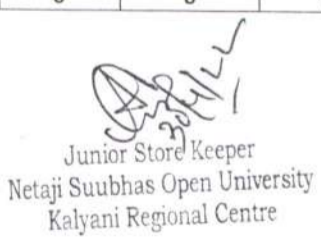 30/4/22
Junior Store Keeper
Netaji Suubhas Open University
Kalyani Regional Centre